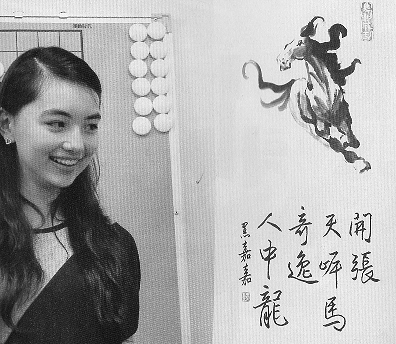 開張
天岸馬
奇逸
人中龍
黑嘉嘉